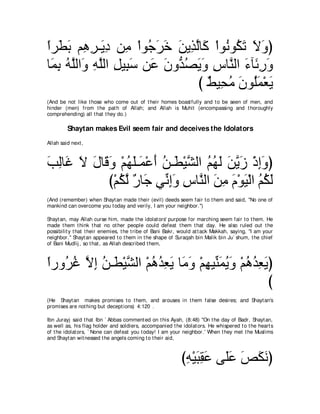 ﴿وَلاَ تَكُونُواْ كَالَّذِينَ خَرَجُواْ مِن دِيَـرِهِم بَطَراً
وَرِئَآءَ النَّاسِ وَيَصُدُّونَ عَن سَبِيلِ اللَّهِ وَاللَّهُ بِمَا
يَعْمَلُونَ مُحِيطٌ ﴾
(And be not like those who come out of their homes boastfully and to be seen of men, and
hinder (men) from the path of Allah; and Allah is Muhit (encompassing and thoroughly
comprehending) all that they do.)
Shaytan makes Evil seem fair and deceives the Idolators
Allah said next,
﴿وَإِذْ زَيَّنَ لَهُمُ الشَّيْطَـنُ أَعْمَـلَهُمْ وَقَالَ لاَ غَالِبَ
لَكُمُ الْيَوْمَ مِنَ النَّاسِ وَإِنِّي جَارٌ لَّكُمْ﴾
(And (remember) when Shaytan made their (evil) deeds seem fair to them and said, "No one of
mankind can overcome you today and verily, I am your neighbor.")
Shaytan, may Allah curse him, made the idolators' purpose for marching seem fair to them. He
made them think that no other people could defeat them that day. He also ruled out the
possibility that their enemies, the tribe of Bani Bakr, would attack Makkah, saying, "I am your
neighbor." Shaytan appeared to them in the shape of Suraqah bin Malik bin Ju`shum, the chief
of Bani Mudlij, so that, as Allah described them,
﴿يَعِدُهُمْ وَيُمَنِّيهِمْ وَمَا يَعِدُهُمْ الشَّيْطَـنُ إِلاَّ غُرُوراً
﴾
(He Shaytan makes promises to them, and arouses in them false desires; and Shaytan's
promises are nothing but deceptions) 4:120 .
Ibn Jurayj said that Ibn `Abbas commented on this Ayah, (8:48) "On the day of Badr, Shaytan,
as well as, his flag holder and soldiers, accompanied the idolators. He whispered to the hearts
of the idolators, `None can defeat you today! I am your neighbor.' When they met the Muslims
and Shaytan witnessed the angels coming to their aid,
﴿نَكَصَ عَلَى عَقِبَيْهِ﴾